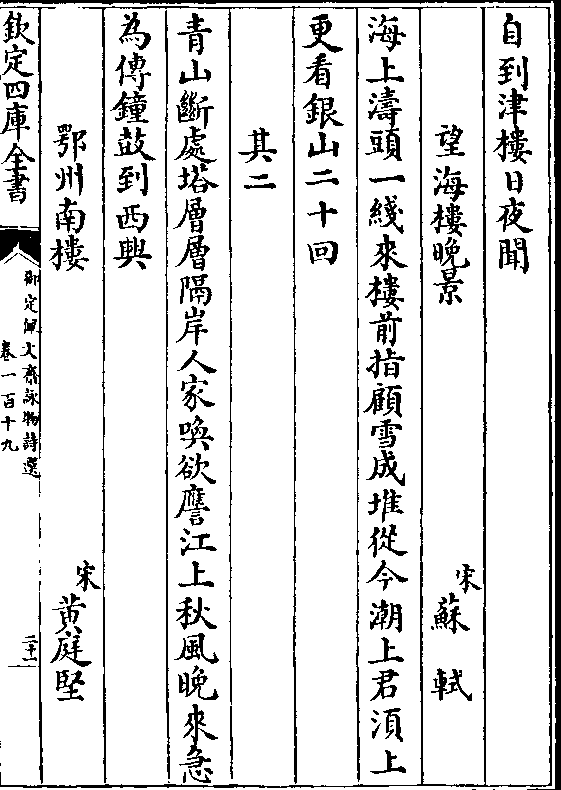 自到津樓日夜聞
望海樓晩景
宋 蘇軾
海上濤頭一綫來樓前指顧雪成堆從今潮上君須上
更看銀山二十回
其二
青山斷處塔層層隔岸人家喚欲譍江上秋風晩來急
為傳鐘鼓到西興
鄂州南樓
宋 黄庭堅
欽定四庫全書
御定佩文齋詠物詩選
卷一百十九
二十一